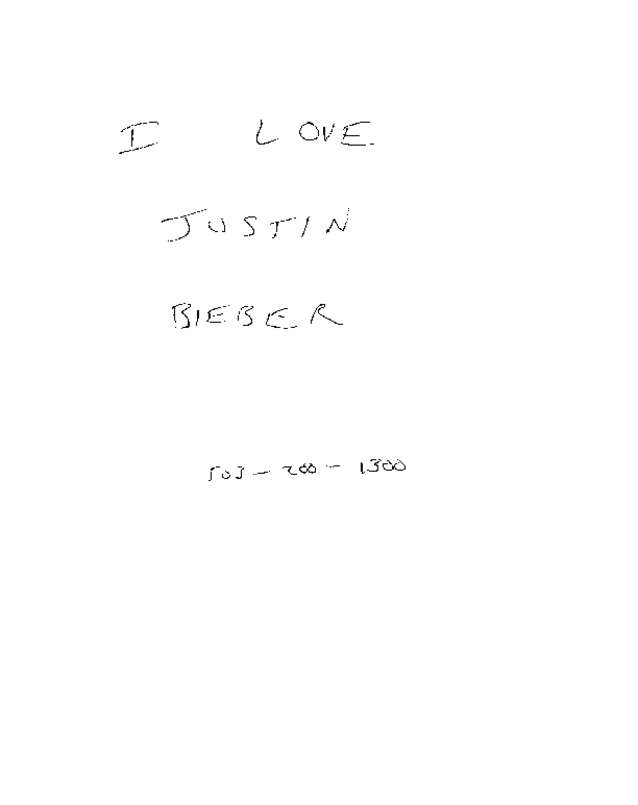 I LOVE
JUSTIN
BIEBER
503-200-1300